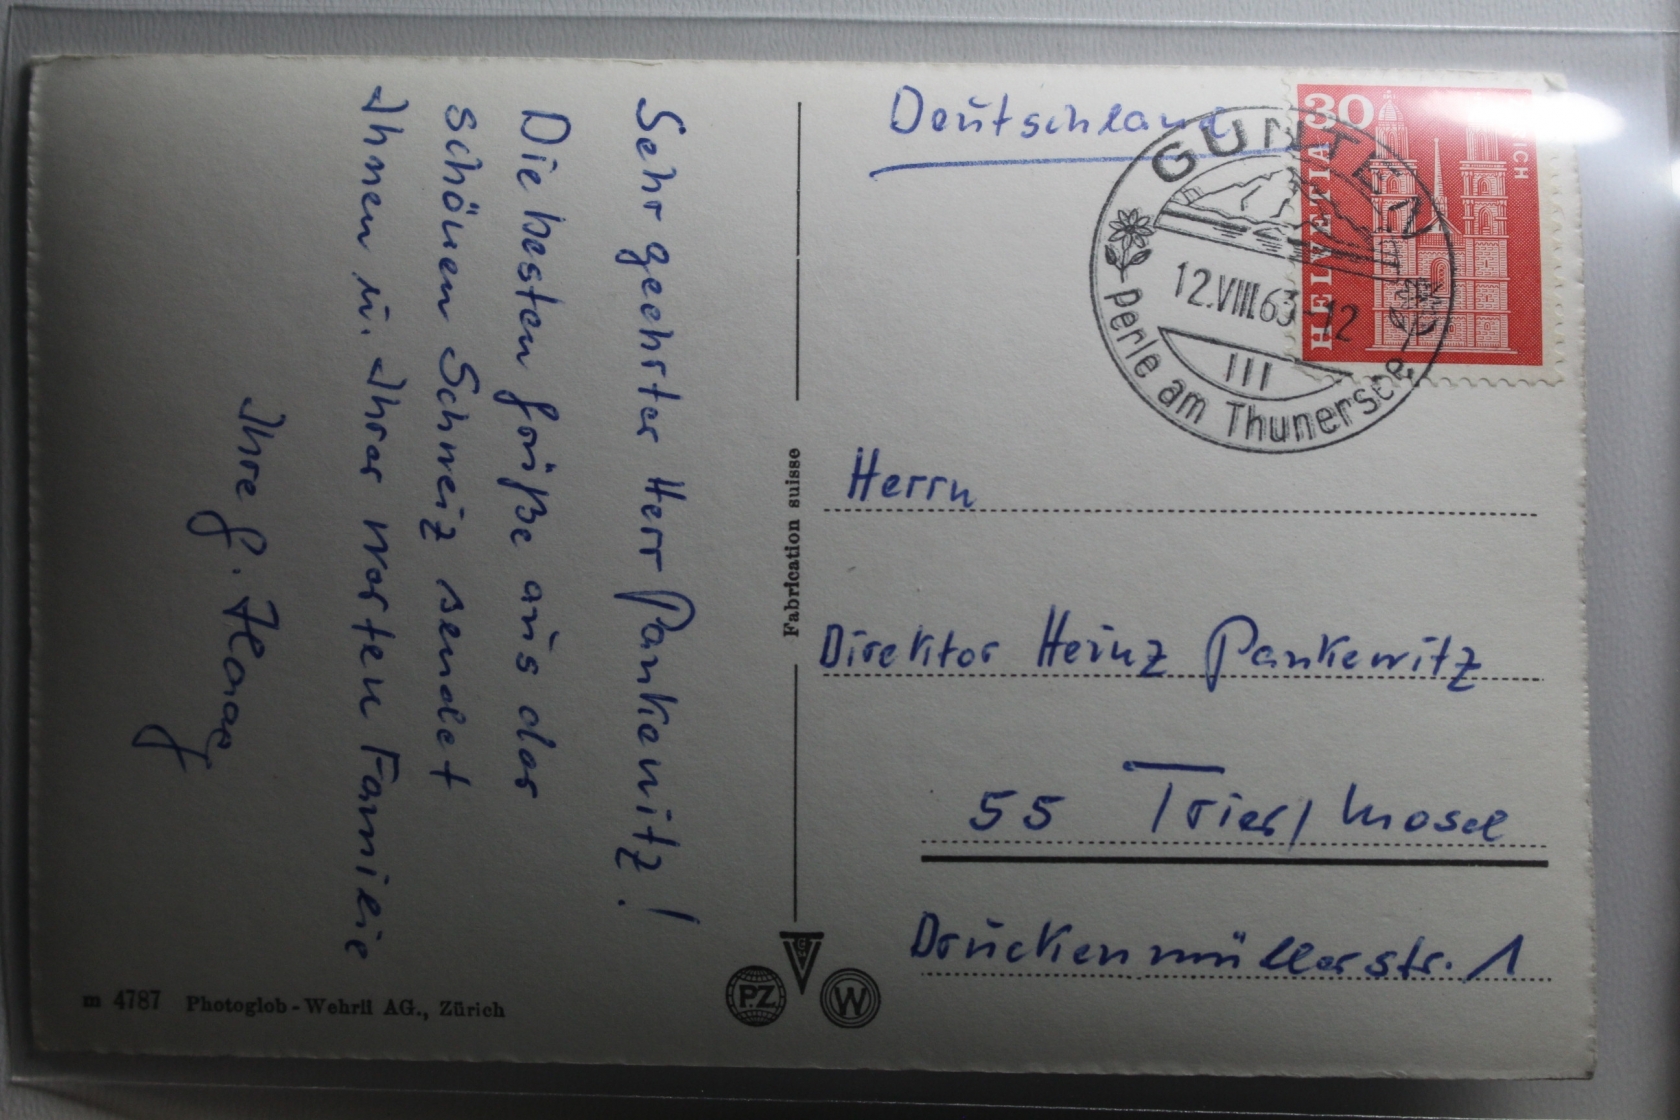 Sehr geehrter Herr Pankewitz!
Die besten Grüße aus der
schönen Schweiz sendet
Ihnen u. Ihrer werten Familie
Ihre G. Haag
m 4787 Photoglob - Wehrli AG., Zürich
Fabrication suisse
P.Z.
W
Deutschland
GUNTEN
12.VIII.63-12
III
Perle am Thunersee
30
HELVETIA
Herrn
Direktor Heinz Pankewitz
55 Trier/Mosel
Druckenmüllerstr. 1